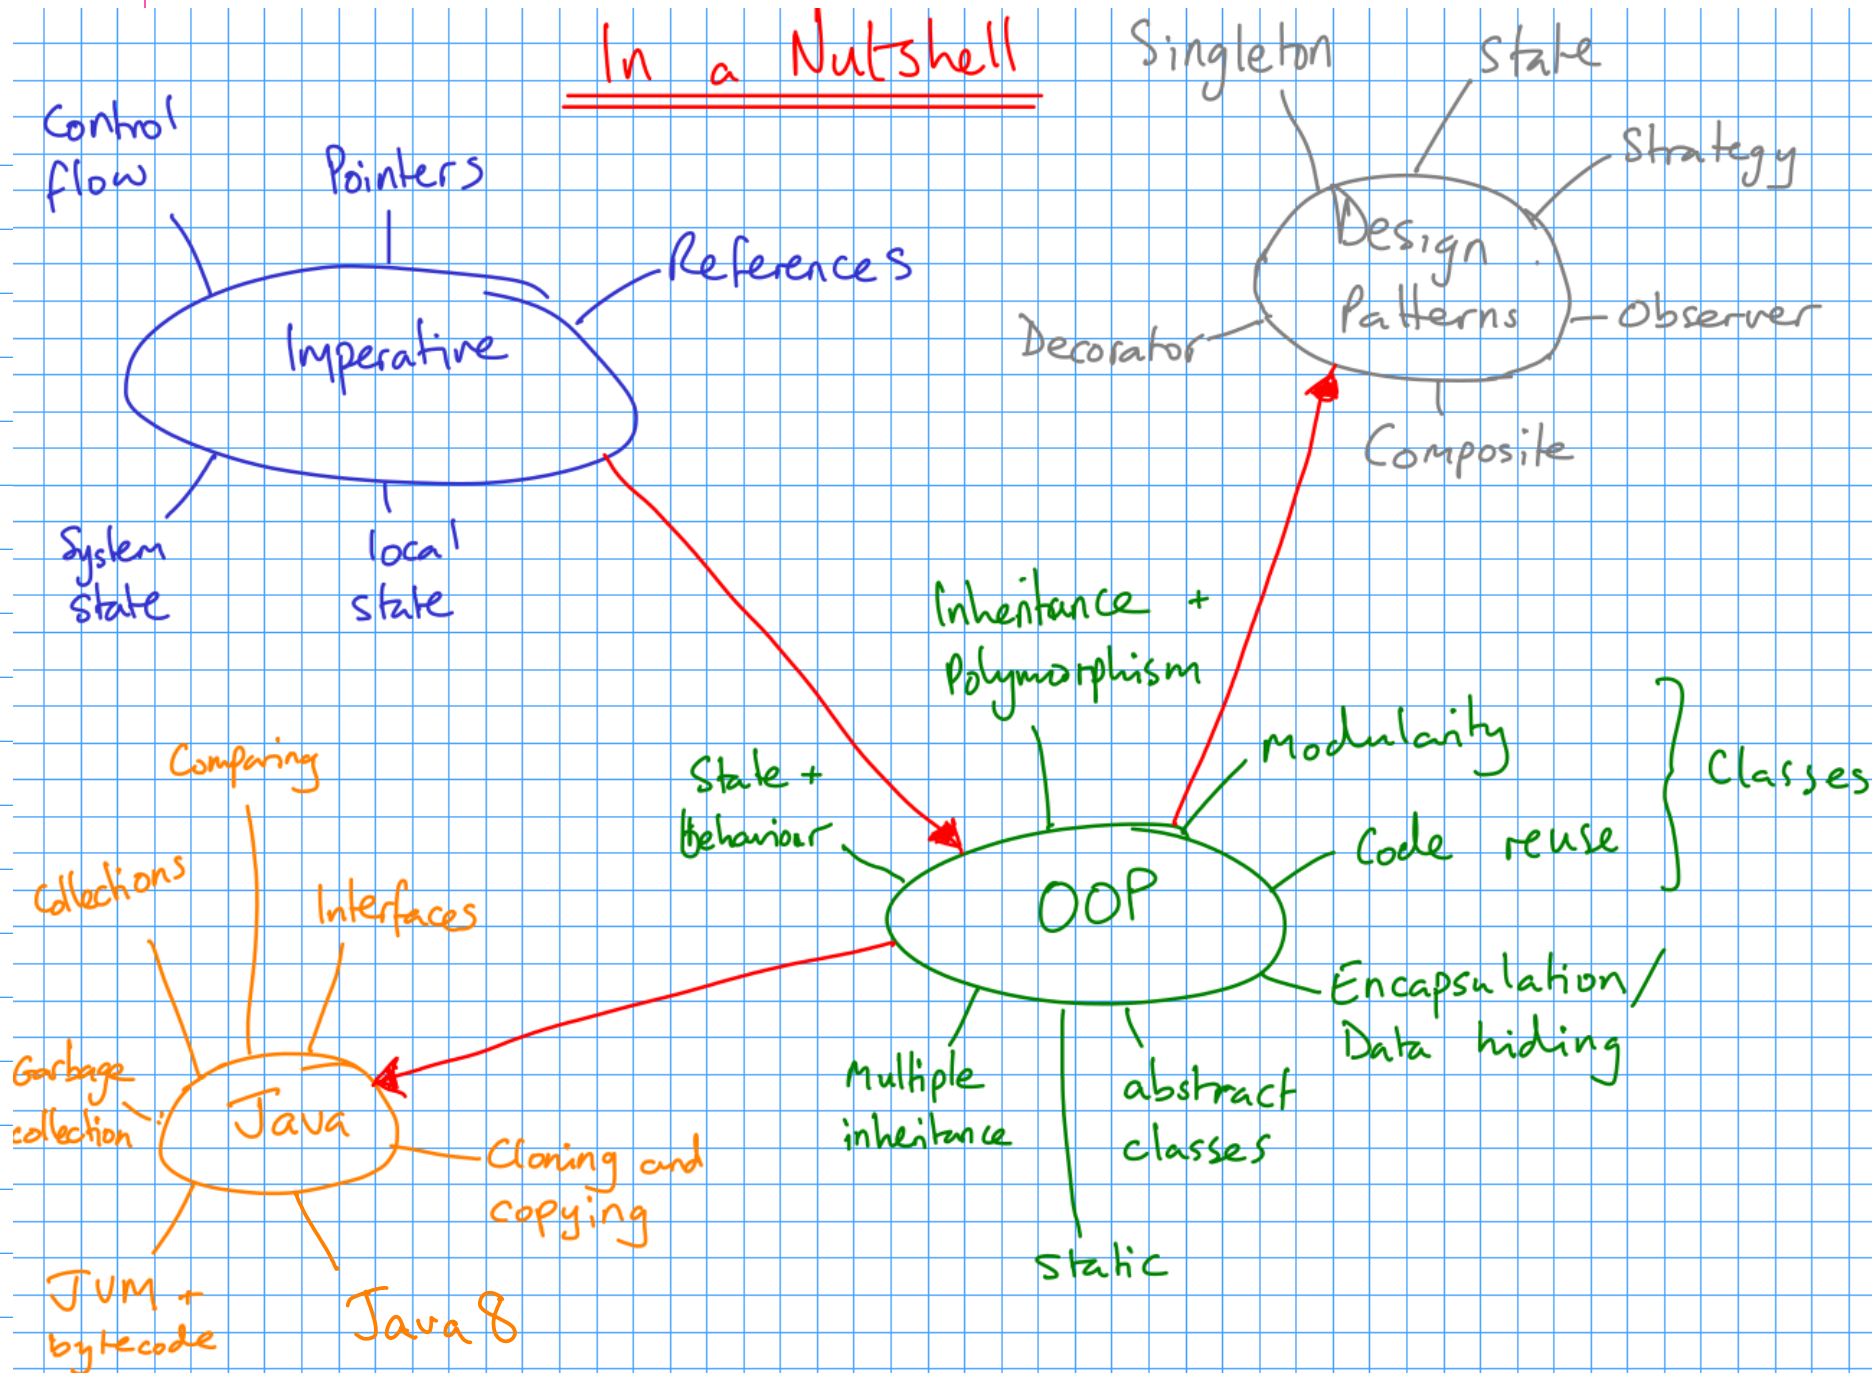 In a Nutshell
Control
flow
Pointers
References
Imperative
System
state
local
state
Singleton
State
Strategy
Design
Patterns
Observer
Decorator
Composite
Inheritance +
Polymorphism
State +
behaviour
Modularity
Code reuse
Classes
OOP
Encapsulation/
Data hiding
Multiple
inheritance
abstract
classes
static
Comparing
Collections
Interfaces
Garbage
collection
Java
Cloning and
copying
JVM +
bytecode
Java 8